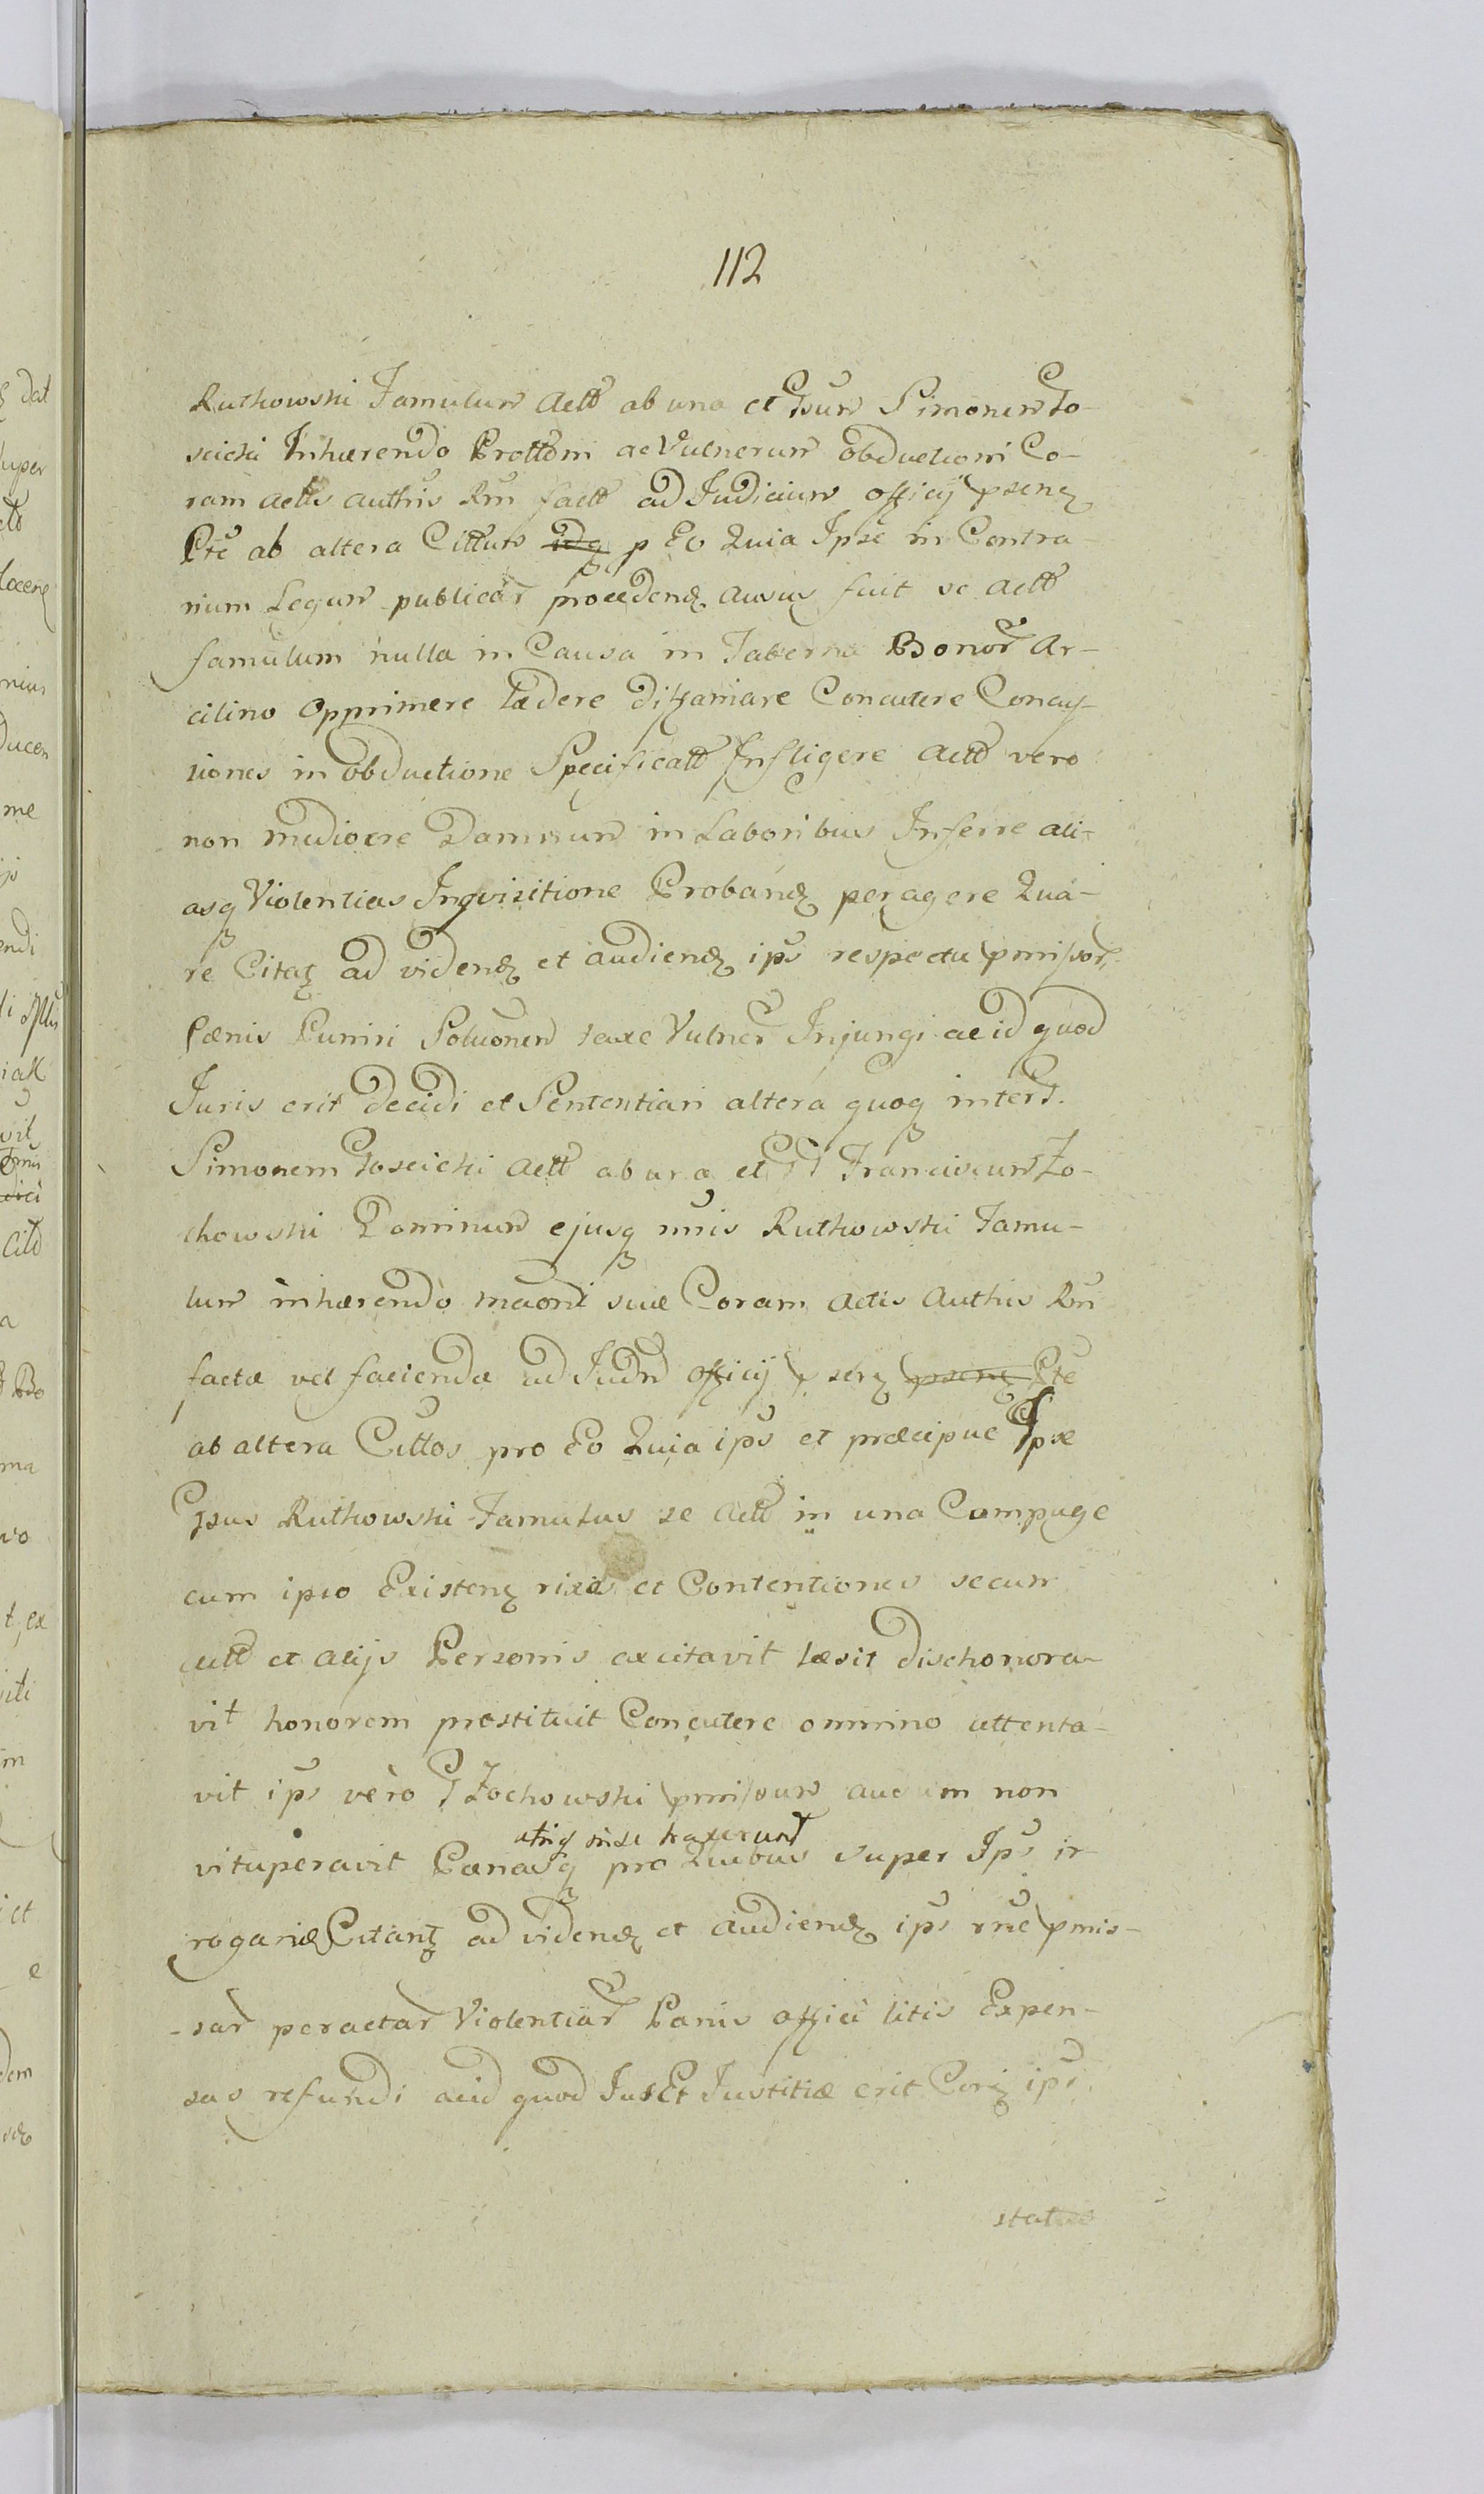 112
Rutkowski Famulum Actt ab una et Gsum Simonem Go-
scicki Inhærendo Prottõni ac Vulnerum obductioni Co-
ram actis authis Rñi factt ad Judicium officij pseng
Pte ab altera Cittum idq p Eo Quia Ipse in Contra-
rium Legum publicar procedeng ausus fuit se Actt
famulum nulla in Causa in Taberna Bonor Ar-
cilino Opprimere lædere diffamare Concutere Concus-
siones in obductione Specificatt Infligere Actt vero
non mediocre Damnum in Laboribus Inferre ali-
asq Violentias Inqvisitione Probandę peragere Qua-
re Citatę ad videndę et audiendę ips respectu pmissor
Pænis Puniri Soluonem taxe Vulner Injungi ac id quod
Juris erit decidi et Sententiari altera quoq inter G.
Simonem Goscicki Actt ab una et GG Franciscum Żo-
chowski Dominum ejusq nnis Rutkowski Famu-
lum inhærendo maoni suæ Coram Actis Authis Rñi
factæ vel faciendæ ad Judm officij pserę psenę Pte
ab altera Cittos pro Eo Quia ips et præcipue Ipse
Gsus Rutkowski Famulus se Actt in una Compage
cum ipso Existenę rixas et Contentiones secum
actt et alijs Personis excitavit læsit dishonora-
vit honorem prostituit Concutere omnino attenta-
vit ips vero G Żochowski pmissum ausum non
utriq in se traxerunt
vituperavit Pænasq pro Quibus super Ips ir-
rogandę Citantę ad videndę et audiendę ips rne pmis-
-sar peractar Violentiar Pænis affici litis Expen-
sas refundi acid quod Jus Et Justitiæ erit Corę ips
status